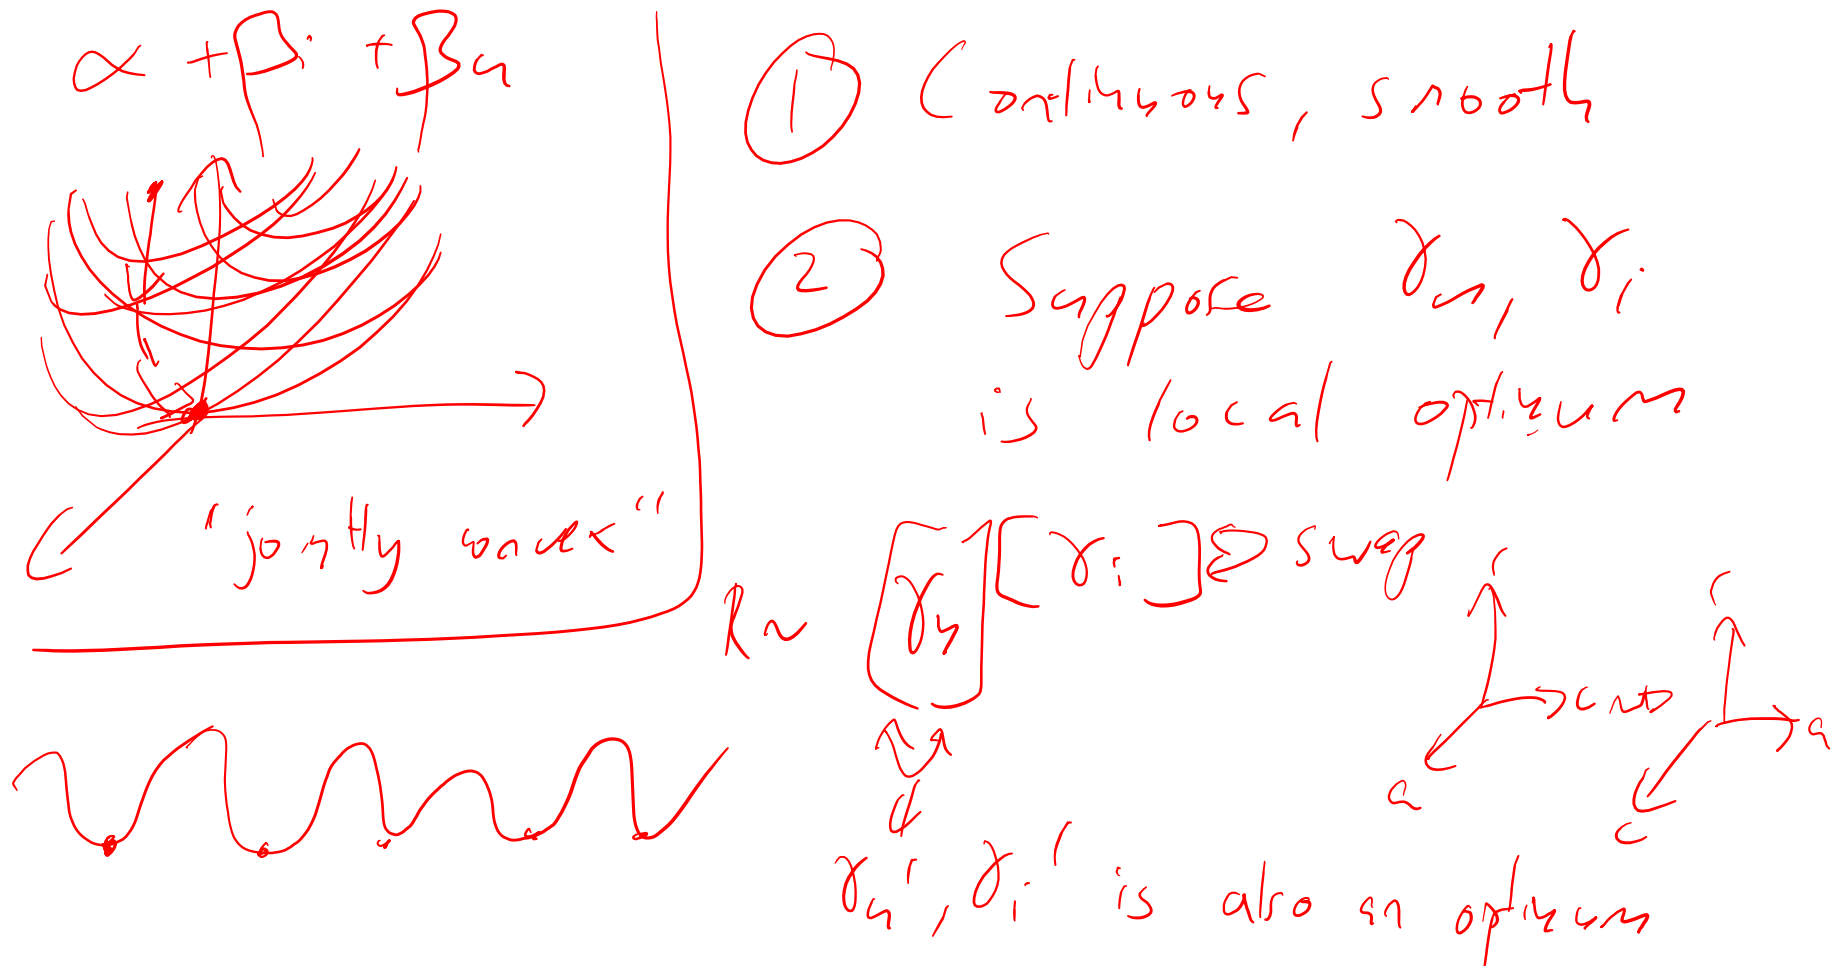 α + βi + βu
"jointly convex"
① Continuous, smooth
② Suppose γu, γi
is local optimum
R ~ [γu] [γi] swap
γu', γi' is also an optimum
a
c
a